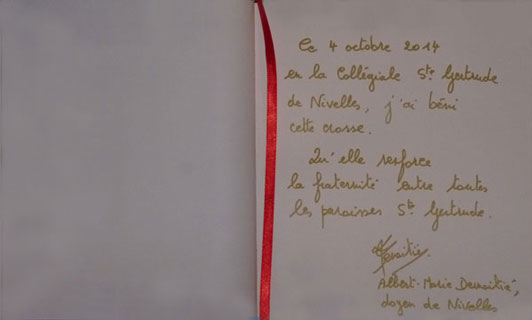 Ce 4 octobre 2014
en la Collégiale Ste Gertrude
de Nivelles, j'ai béni
cette crosse.
Qu'elle renforce
la fraternité entre toutes
les paroisses Ste Gertrude.
Albert-Marie Demoitié,
doyen de Nivelles